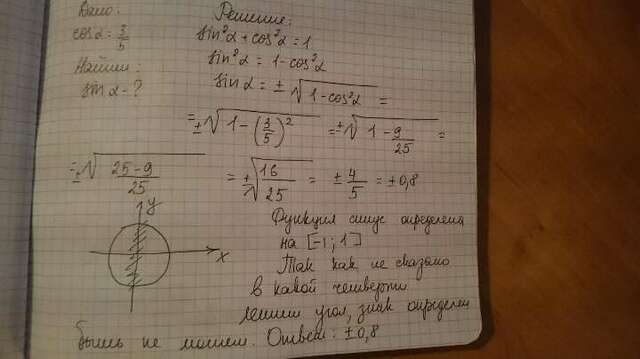 Дано:
cosα = 3/5
Найти:
sinα - ?
Решение:
sin²α + cos²α = 1
sin²α = 1 - cos²α
sinα = ± √(1 - cos²α) =
= ± √(1 - (3/5)²) = ± √(1 - 9/25) =
= ± √((25 - 9)/25) = ± √(16/25) = ± 4/5 = ± 0,8
y
x
Функция синус определена
на [-1; 1]
Так как не сказано
в какой четверти
лежит угол, знак определен
быть не может. Ответ: ± 0,8